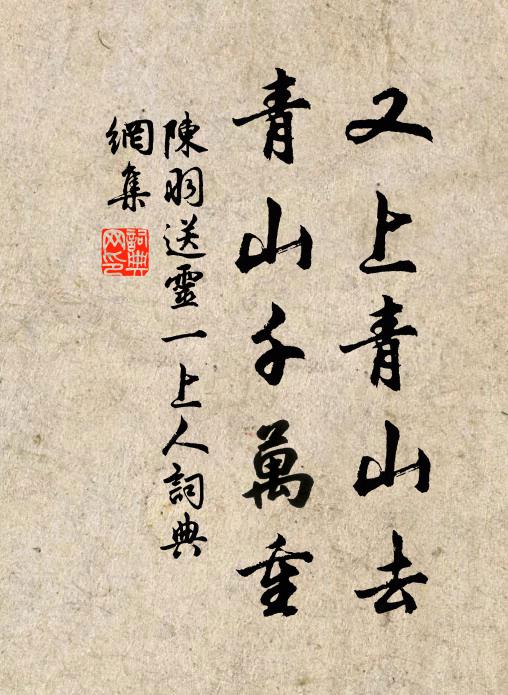 又上青山去
青山千萬重
陳羽送靈一上人詞典
網集
詞典
网印